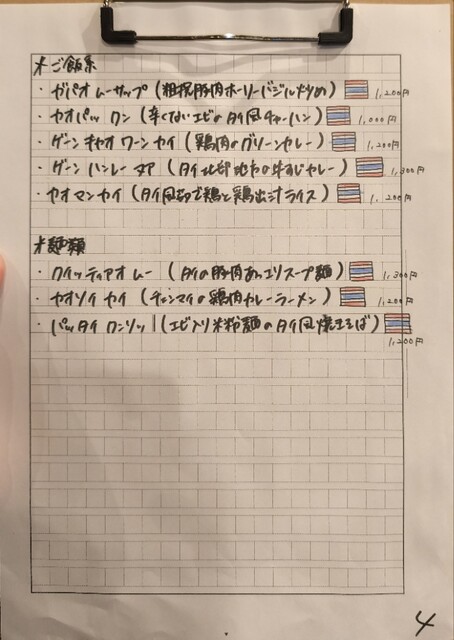 * ご飯系
・ガパオ ムーサップ (粗挽豚肉ホーリーバジル炒め) 1,200円
・カオパッ クン (辛くないエビのタイ風チャーハン) 1,000円
・ゲーン キャオ ワーン カイ (鶏肉のグリーンカレー) 1,200円
・ゲーン ハンレー ヌア (タイ北部地方の牛すじカレー) 1,300円
・カオ マン カイ (タイ風ゆで鶏と鶏出汁ライス) 1,200円
* 麺類
・クイッティアオ ムー (タイの豚肉あっさりスープ麺) 1,300円
・カオソイ カイ (チェンマイの鶏肉カレーラーメン) 1,200円
・パッタイ クンソッ (エビ入り米粉麺のタイ風焼きそば)
1,200円
4